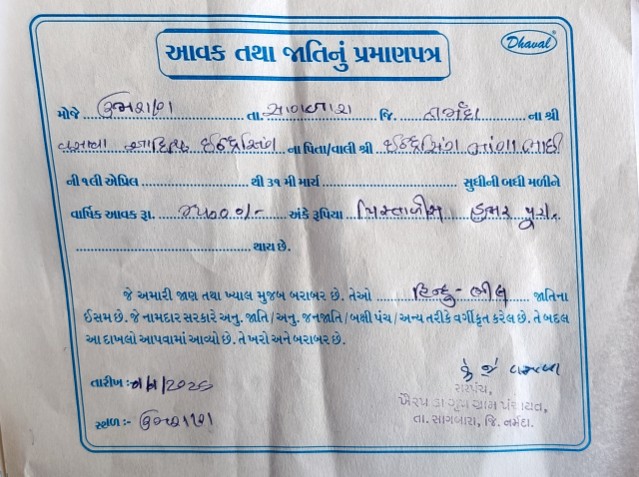 Dhaval
આવક તથા જાતિનું પ્રમાણપત્ર
મોજે ઉમરાણ તા. સાગબારા જિ. નર્મદા ના શ્રી
વસાવા આદિત્ય ઈન્દ્રસિંગ ના પિતા/વાલી શ્રી ઈન્દ્રસિંગ
ની ૧લી એપ્રિલ થી ૩૧ મી માર્ચ સુધીની બધી મળીને
વાર્ષિક આવક રૂા. ૪૫૦૦૦/- અંકે રૂપિયા પિસ્તાળીસ હજાર પુરા.
થાય છે.
જે અમારી જાણ તથા ખ્યાલ મુજબ બરાબર છે. તેઓ હિન્દુ - ભીલ જાતિના
ઈસમ છે. જે નામદાર સરકારે અનુ. જાતિ / અનુ. જનજાતિ / બક્ષી પંચ / અન્ય તરીકે વર્ગીકૃત કરેલ છે. તે બદલ
આ દાખલો આપવામાં આવ્યો છે. તે ખરો અને બરાબર છે.
તારીખ :-
સરપંચ,
ગ્રુપ ગ્રામ પંચાયત,
તા. સાગબારા, જિ. નર્મદા.
સ્થળ :- ઉમરાણ